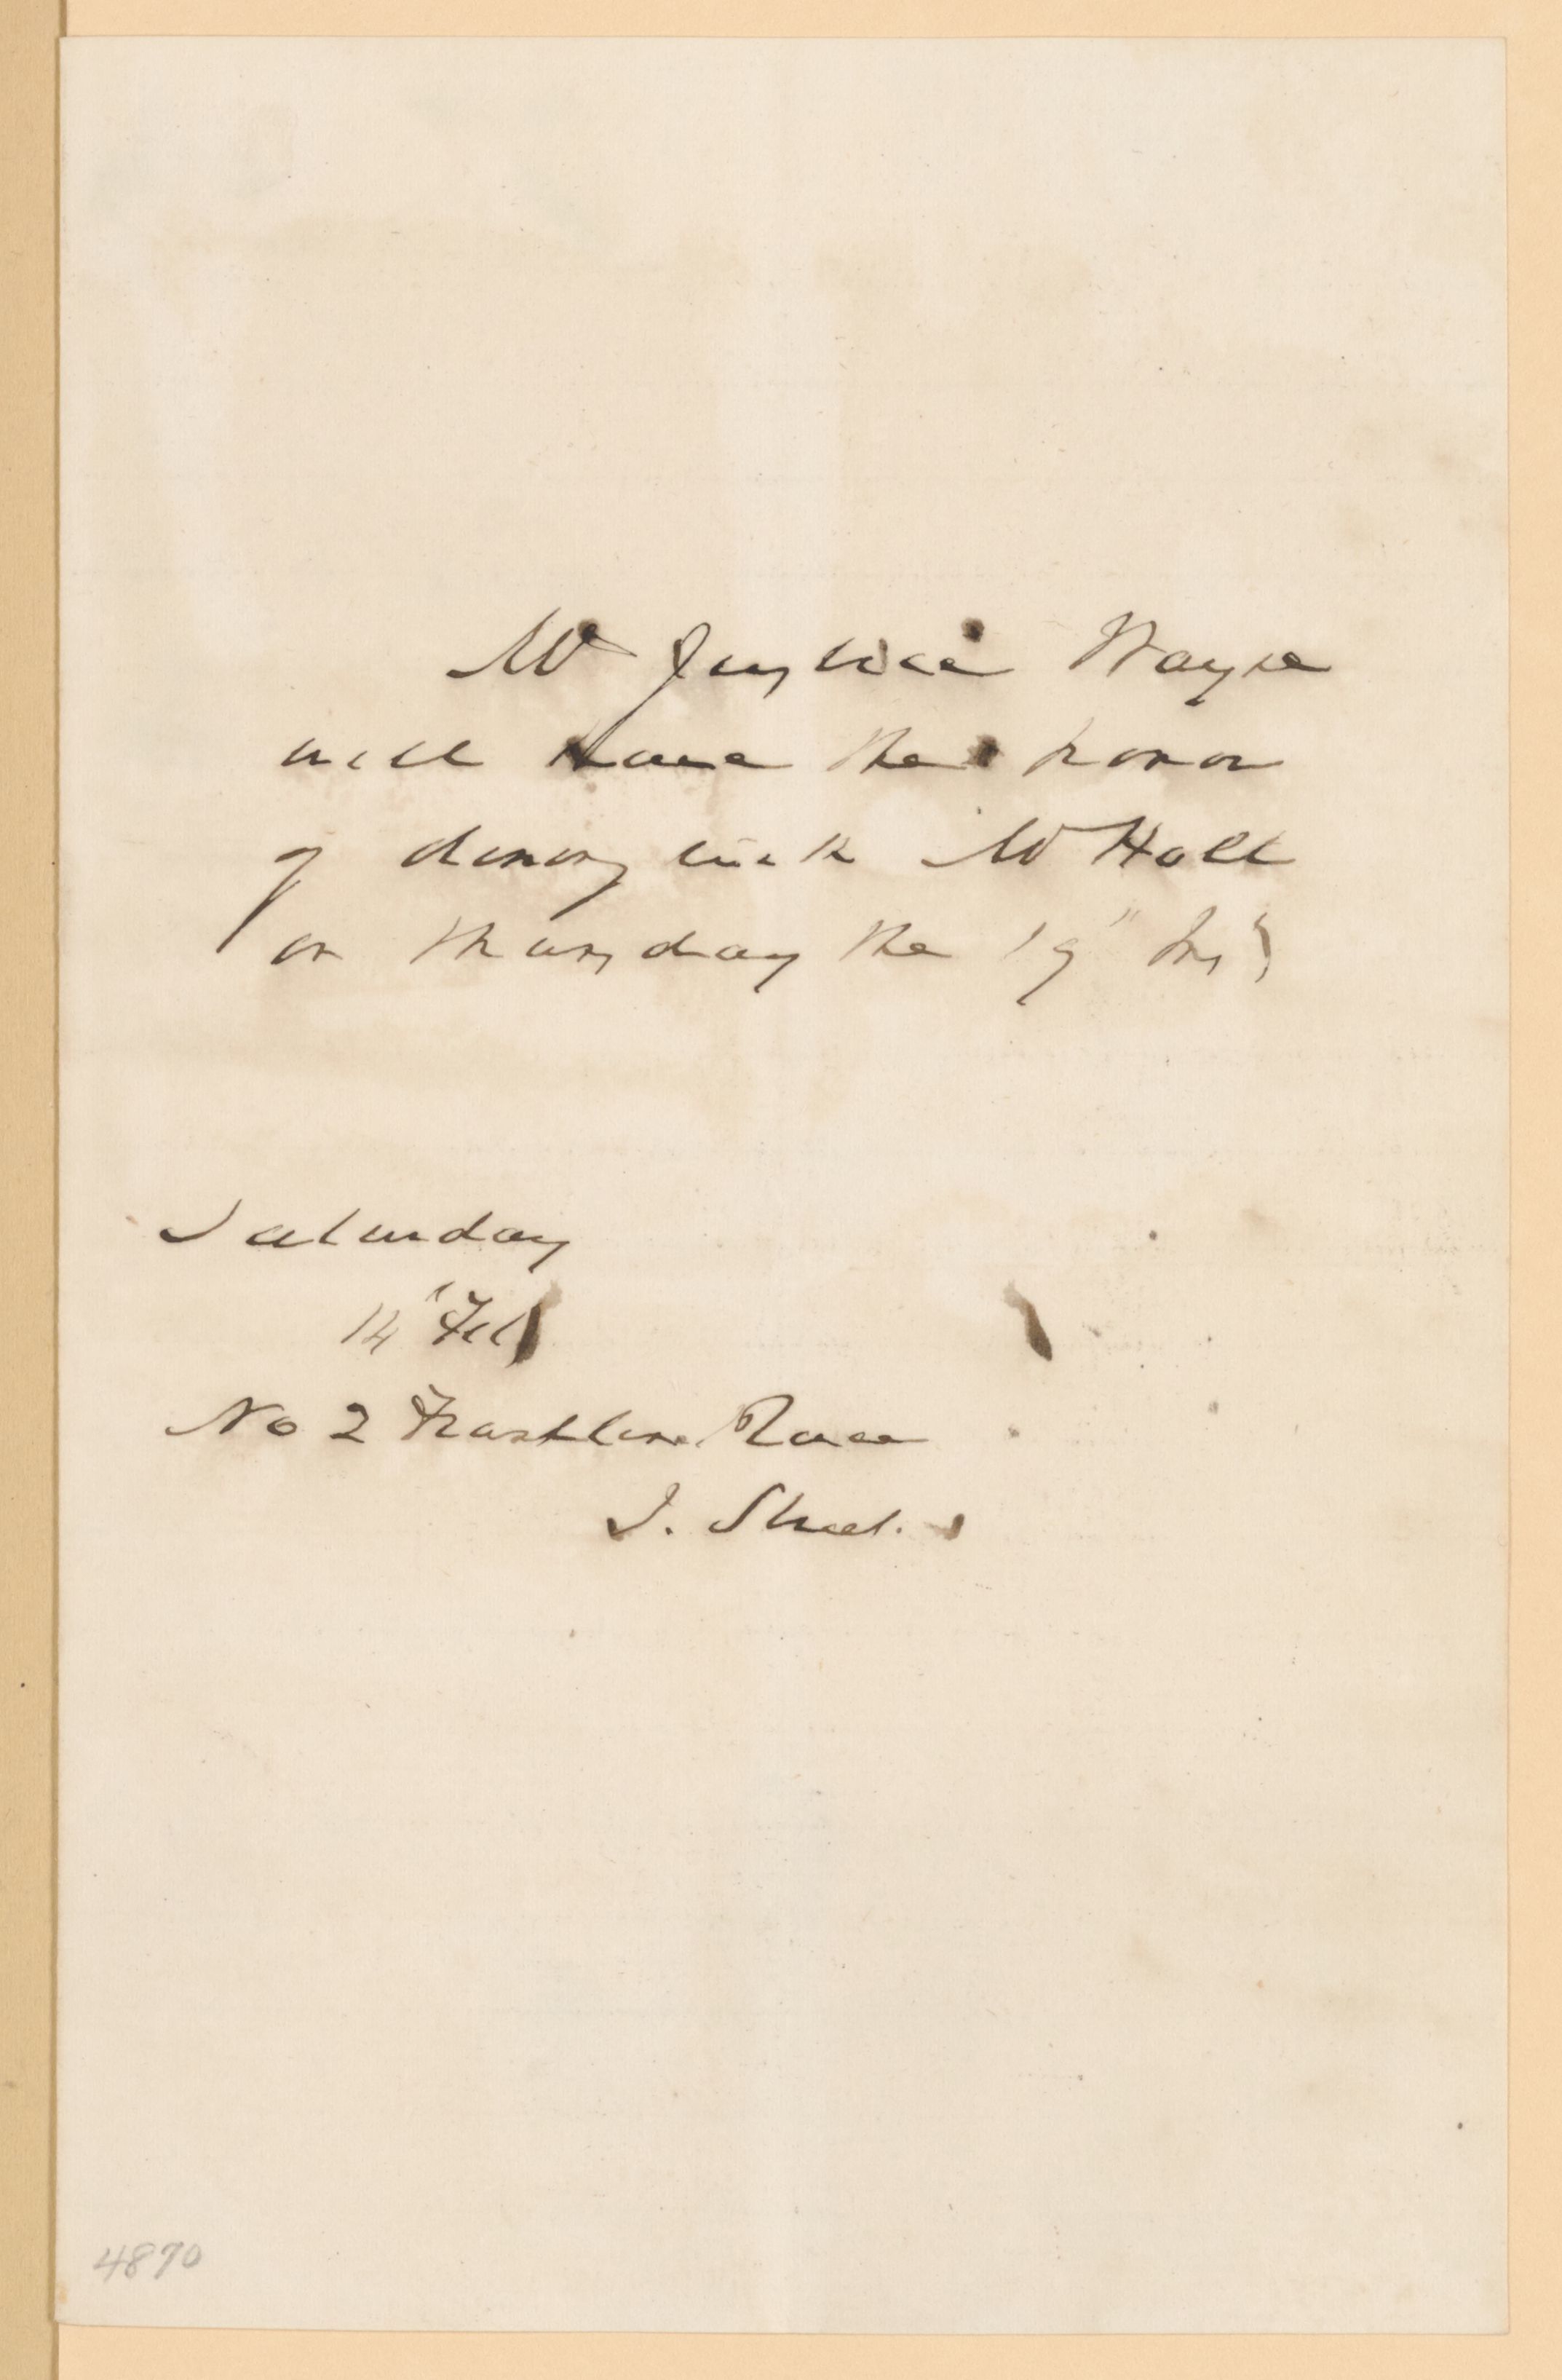 Mr Justice Wayne
will have the honor
of dining with Mr Hall
on Thursday the 19" Inst
Saturday
14" Feb
No 2 Franklin Place
I. Street.
4870